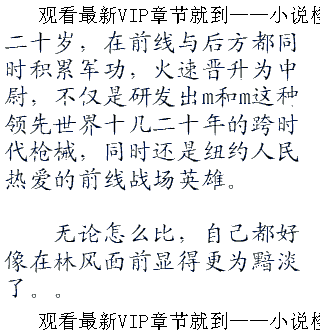 观看最新VIP章节就到——小说楼
二十岁，在前线与后方都同
时积累军功，火速晋升为中
尉，不仅是研发出m和m这种
领先世界十几二十年的跨时
代枪械，同时还是纽约人民
热爱的前线战场英雄。
无论怎么比，自己都好
像在林风面前显得更为黯淡
了。。
观看最新VIP章节就到——小说